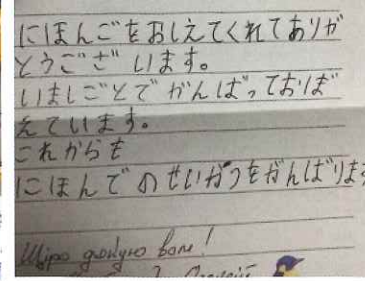 にほんごをおしえてくれてありが
とうございます。
いましごとでがんばっておぼ
えています。
これからも
にほんでのせいかつをがんばります